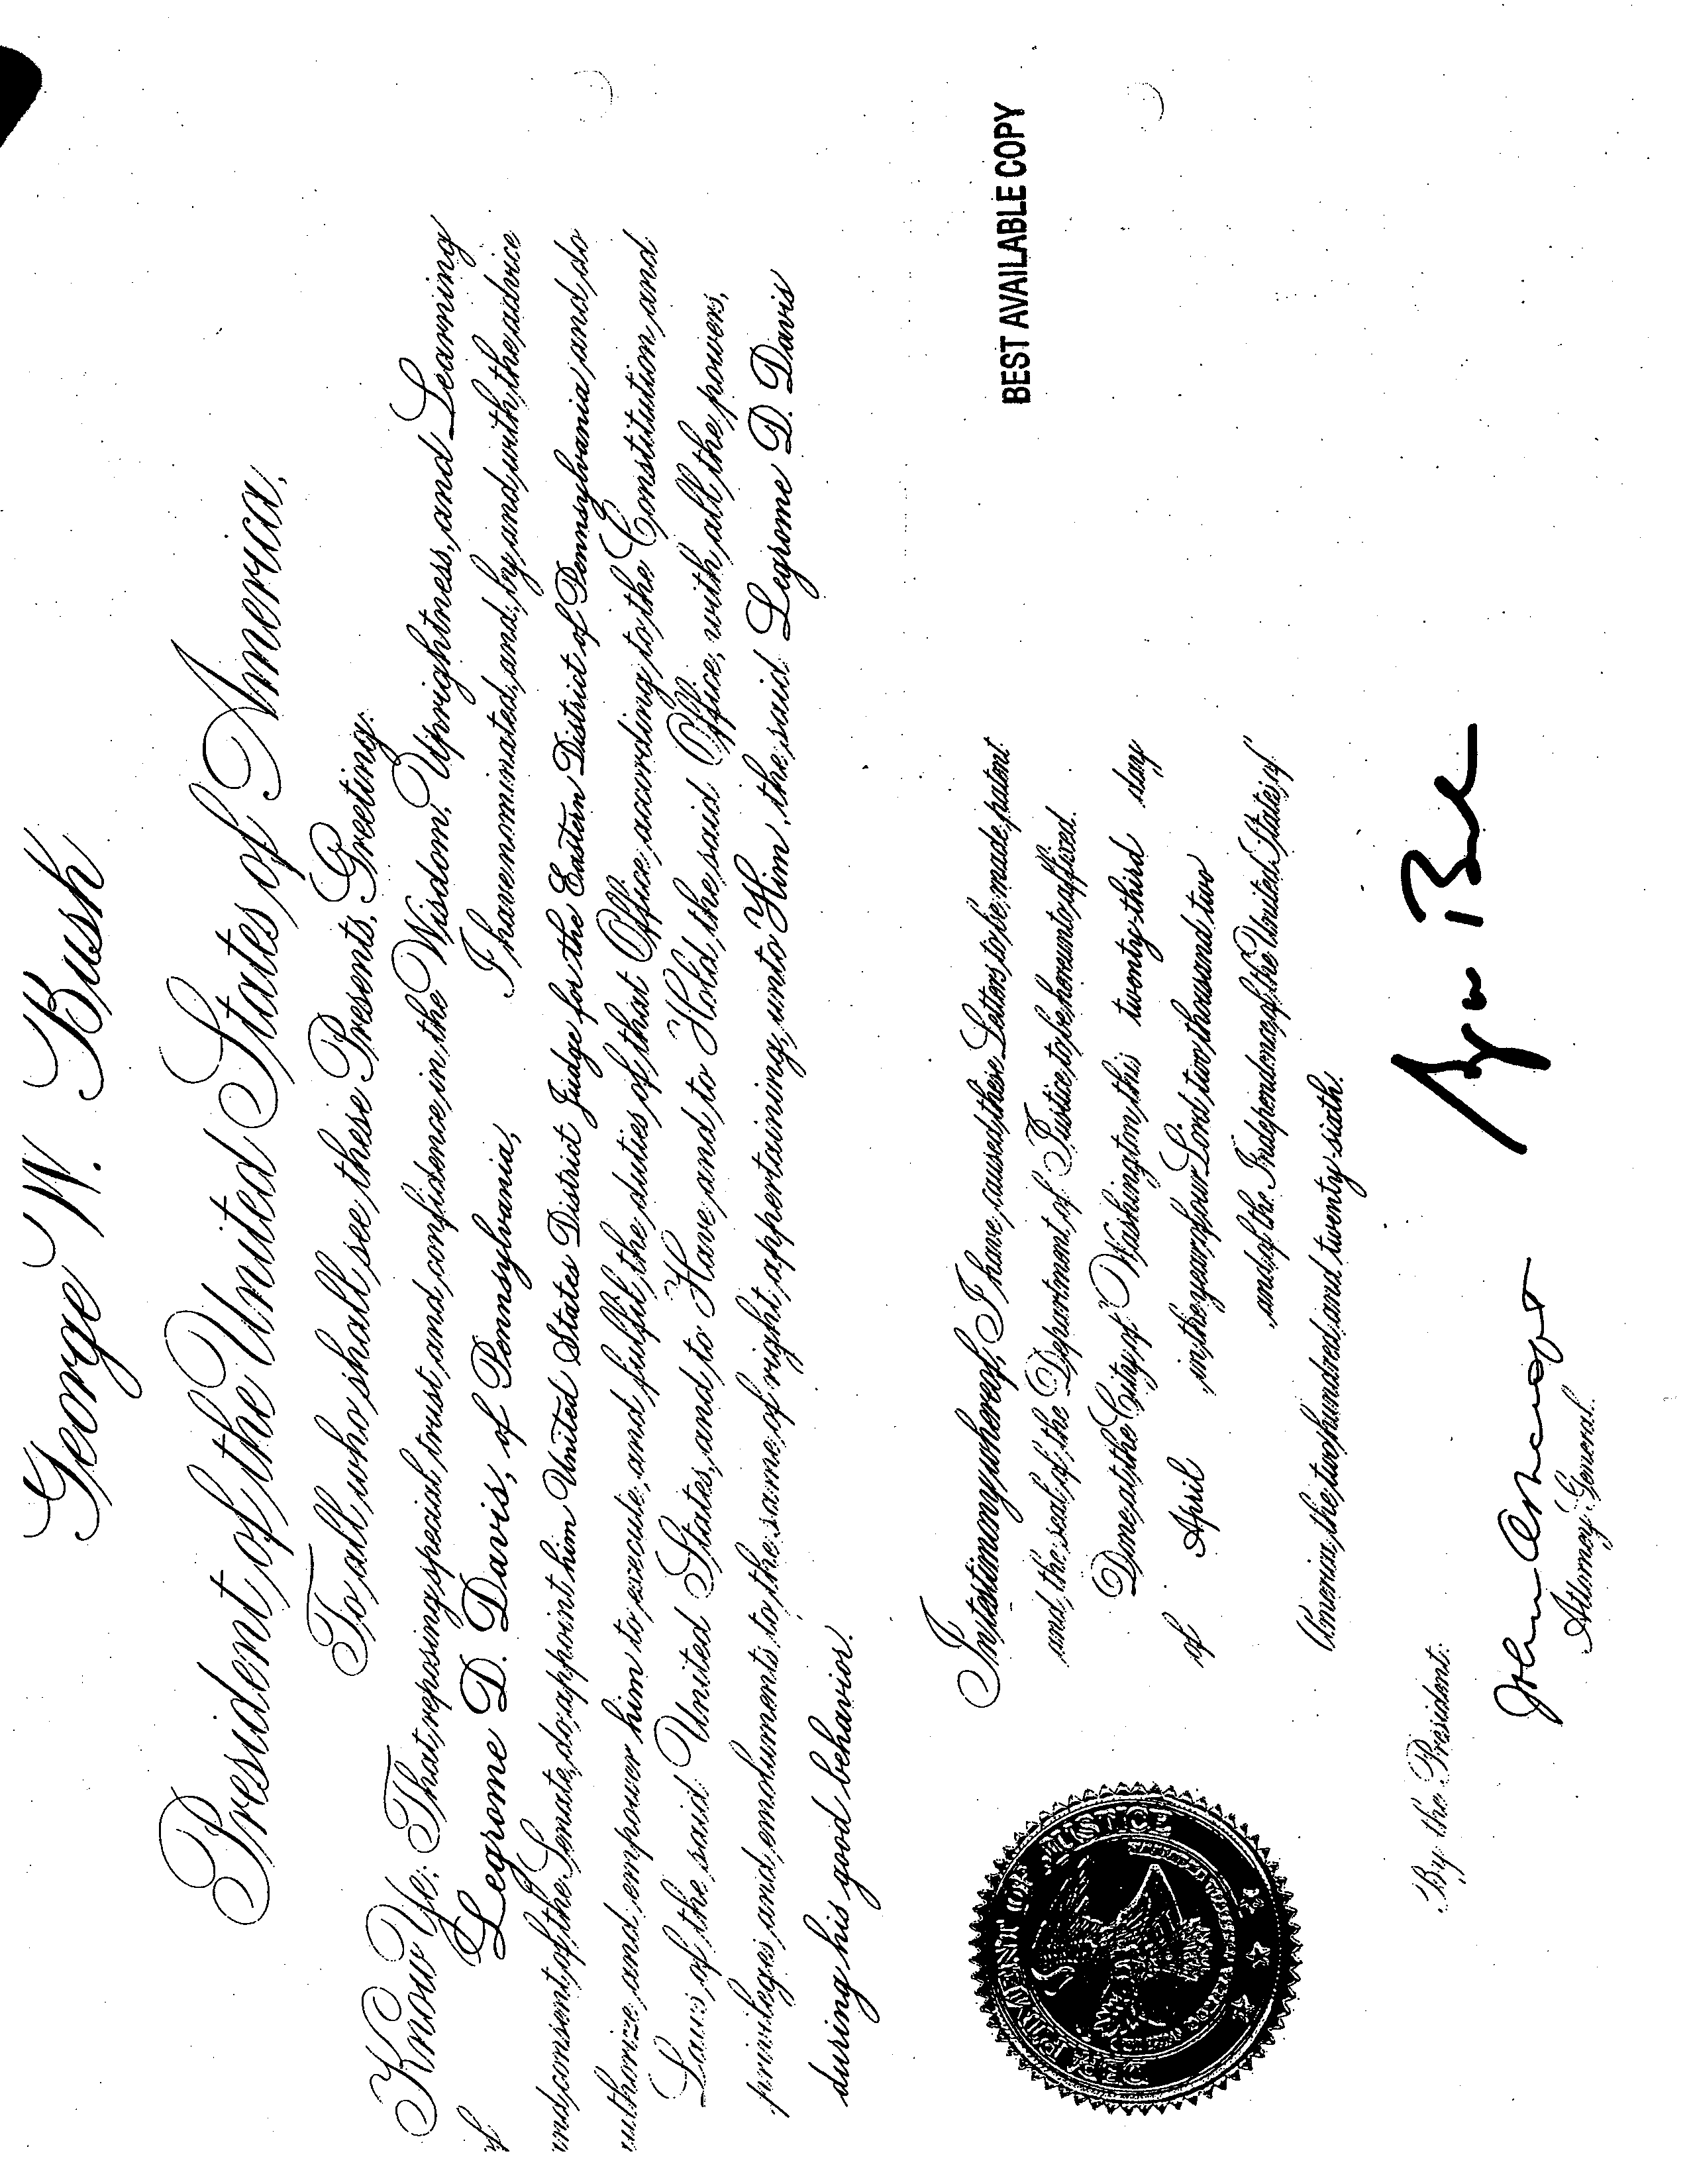 George W. Bush
President of the United States of America,
To all who shall see these Presents, Greeting:
Know Ye: That, reposing special trust and confidence in the Wisdom, Uprightness, and Learning
of Legrome D. Davis, of Pennsylvania, I have nominated, and, by and with the advice
and consent of the Senate, do appoint him United States District Judge for the Eastern District of Pennsylvania and do
authorize and empower him to execute and fulfil the duties of that Office according to the Constitution and
Laws of the said United States, and to Have and to Hold the said Office, with all the powers,
privileges and emoluments to the same of right appertaining, unto Him, the said Legrome D. Davis
during his good behavior.
In testimony whereof, I have caused these Letters to be made patent
and the seal of the Department of Justice to be hereunto affixed.
Done at the City of Washington this twenty-third day
of April in the year of our Lord two thousand two
and of the Independence of the United States of
America the two hundred and twenty-sixth.
BEST AVAILABLE COPY
DEPARTMENT OF JUSTICE
By the President:
John Ashcroft
Attorney General